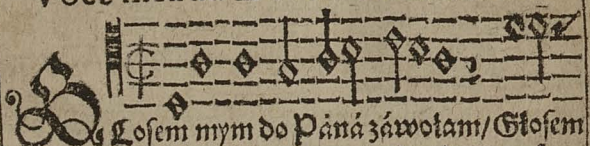 GŁosem mym do Páná záwołam/ Głosem